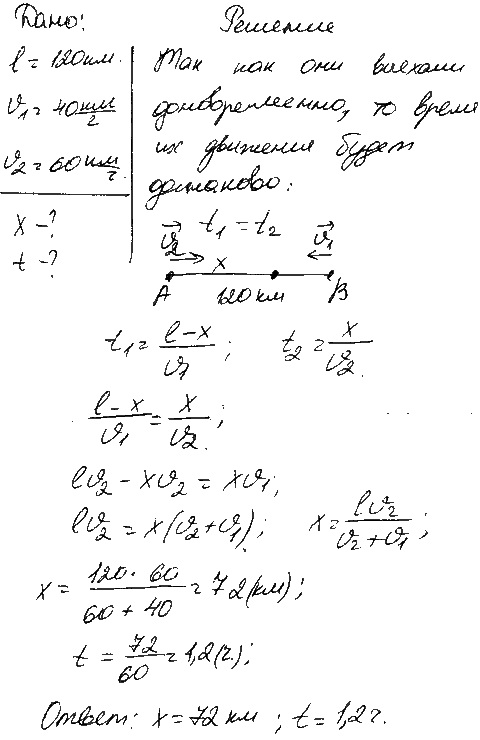 Дано:
l = 120 км.
υ₁ = 40 км/г
υ₂ = 60 км/г.
x - ?
t - ?
Решение
Так как они выехали
одновременно, то время
их движения будет
одинаково:
t₁ = t₂
υ₂ υ₁
x
A 120 км B
t₁ = (l - x)/υ₁ ; t₂ = x/υ₂.
(l - x)/υ₁ = x/υ₂ ;
lυ₂ - xυ₂ = xυ₁ ;
lυ₂ = x(υ₂ + υ₁) ; x = lυ₂/(υ₂ + υ₁) ;
x = (120 · 60)/(60 + 40) = 72 (км) ;
t = 72/60 = 1,2 (г.) ;
Ответ: x = 72 км ; t = 1,2 г.